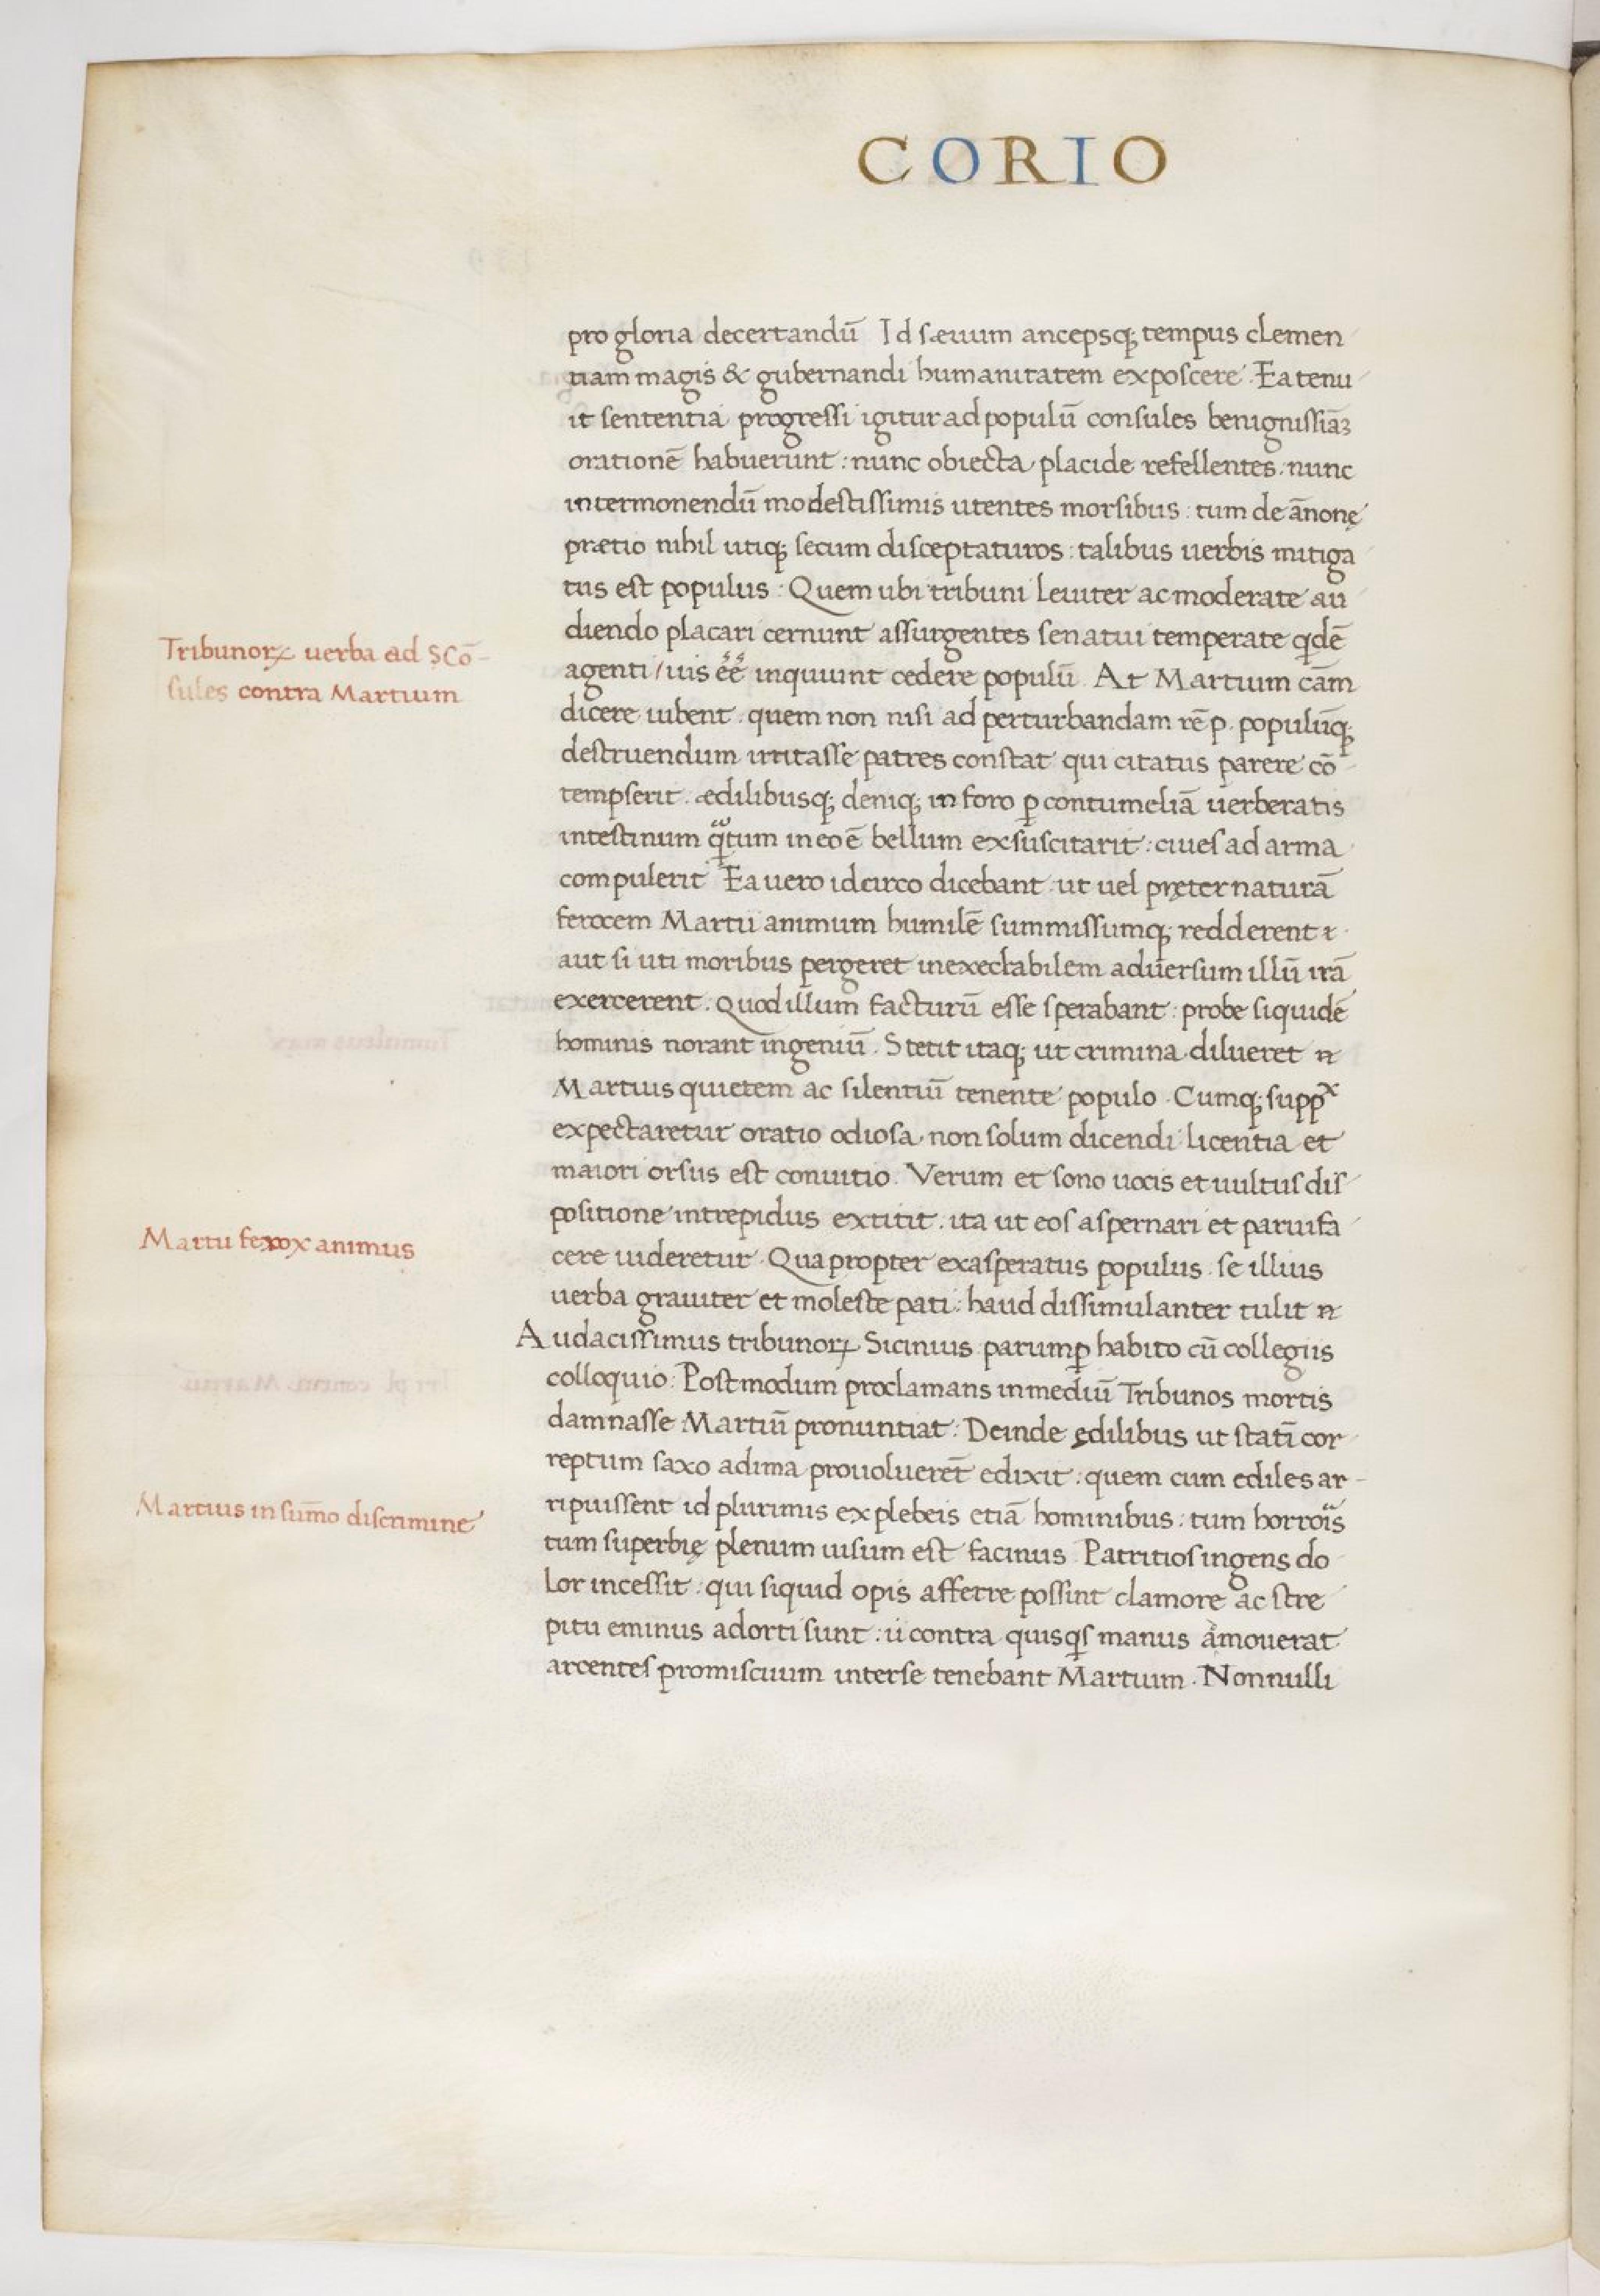 CORIO
pro gloria decertandū Id sæuum ancepsq; tempus clemen
tiam magis & gubernandi humanitatem exposcere. Ea tenu
it sententia progressi igitur ad populū consules benignissiāꝫ
orationē habuerunt: nunc obiecta placide refellentes. nunc
inter monendū modestissimis utentes morsibus: tum de ānonę
prætio nihil utiq; secum disceptaturos: talibus uerbis mitiga
tus est populus: Quem ubi tribuni leuiter ac moderate au
diendo placari cernunt assurgentes senatui temperate qdē
Tribunoꝝ uerba ad Cō-
sules contra Martium
agenti / uis ēē inquiunt cedere populū. At Martium cām
dicere iubent. quem non nisi ad perturbandam rē p. populūq;
destruendum irritasse patres constat qui citatus parere cō
tempserit. ædilibusq; deniq; in foro ꝑ contumeliā uerberatis
intestinum tum in eo ē bellum exsuscitarit: ciues ad arma
compulerit Ea uero idcirco dicebant. ut uel pręter naturā
ferocem Martii animum humilē summissumq; redderent
aut si uti moribus pergeret inexectabilem aduersum illū irā
exercerent. Quod illum facturū esse sperabant: probe siquidē
hominis norant ingeniū. Stetit itaq; ut crimina dilueret
Martius quietem ac silentiū tenente populo. Cumq; suppˣ
expectaretur oratio odiosa non solum dicendi licentia et
maiori orsus est conuitio. Verum et sono uocis et uultus dis
positione intrepidus extitit. ita ut eos aspernari et paruifa
Martii ferox animus
cere uideretur. Quapropter exasperatus populus se illius
uerba grauiter et moleste pati: haud dissimulanter tulit
Audacissimus tribunoꝝ Sicinius parumꝑ habito cū collegiis
colloquio. Postmodum proclamans in mediū Tribunos mortis
damnasse Martiū pronuntiat. Deinde ędilibus ut statī cor
reptum saxo ad ima prouoluerēt edixit: quem cum ediles ar-
ripuissent id plurimis ex plebeis etiā hominibus: tum
Martius in sum̄o discrimine
tum superbię plenum uisum est facinus. Patritios ingens do
lor incessit. qui siquid opis afferre possint clamore ac stre
pitu eminus adorti sunt: ii contra quisqs manus amouerat
arcentes promiscuum inter se tenebant Martium. Nonnulli